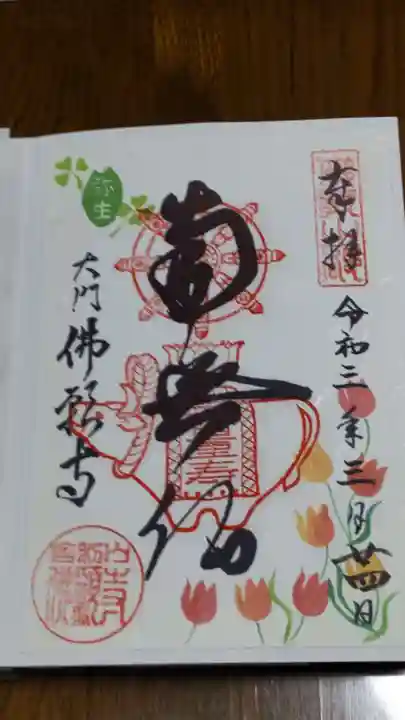 奉拝
令和三年三月廿四日
南無仏
弥生
大門
佛願寺